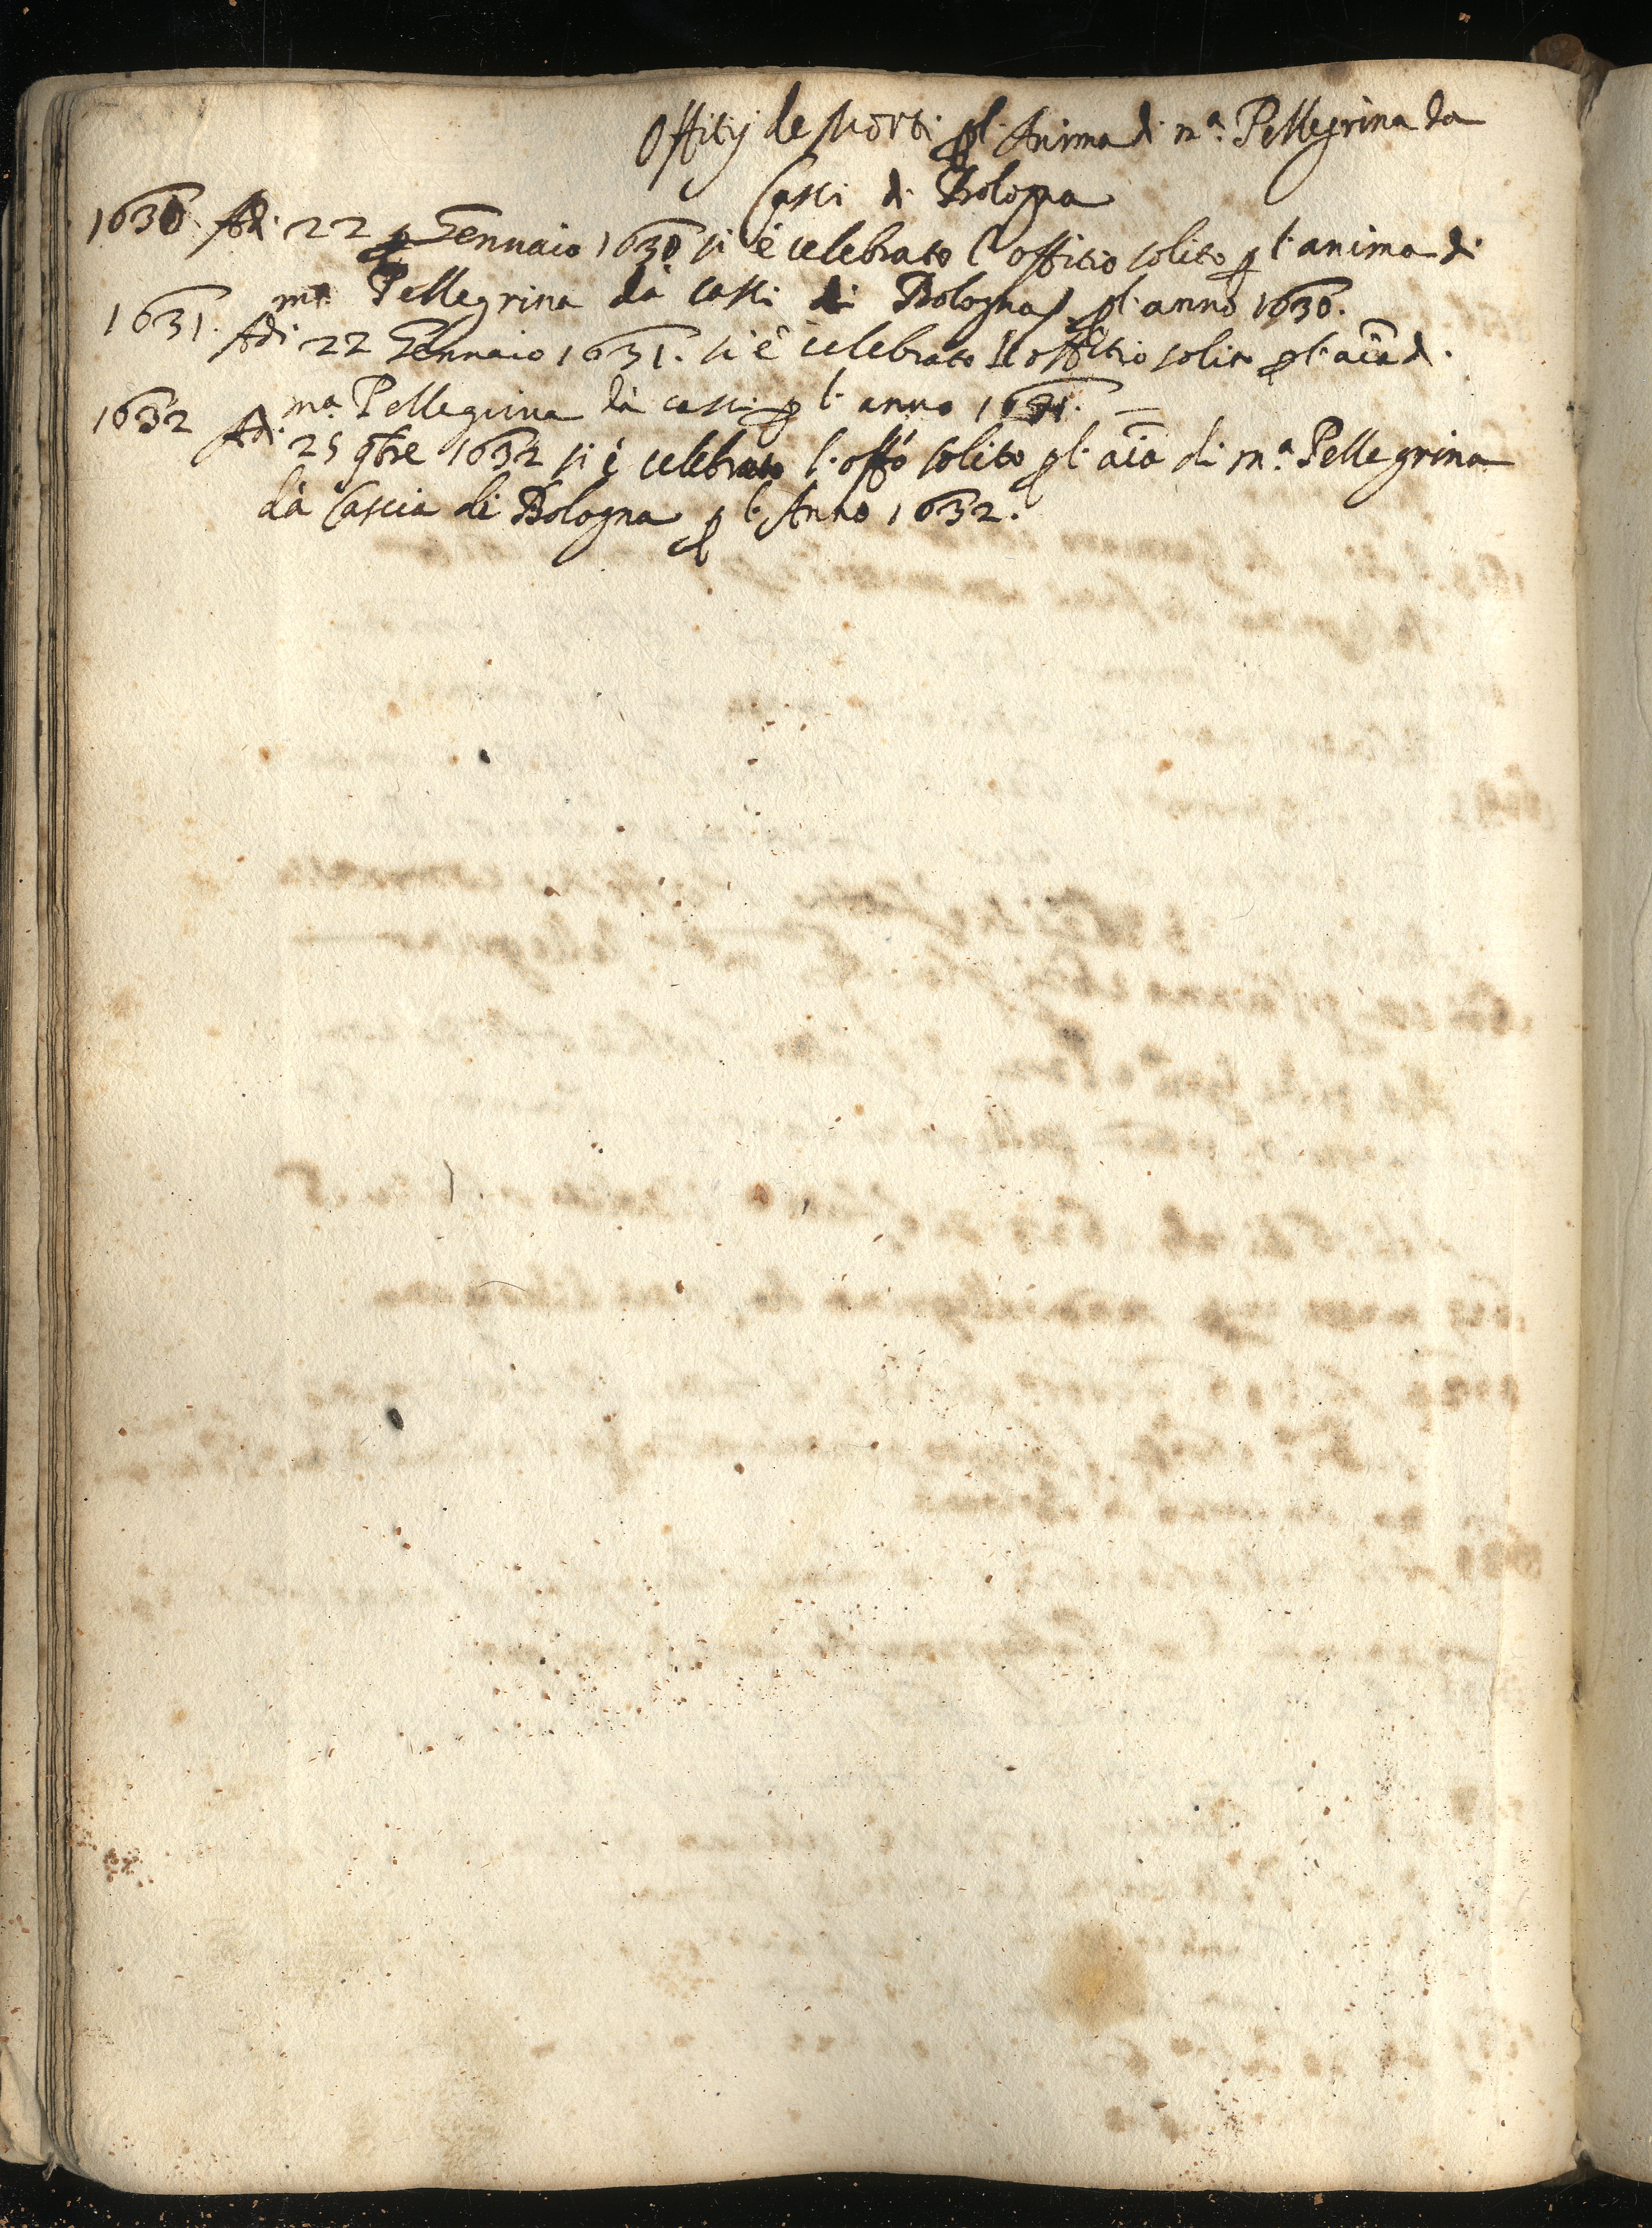 Offitij de Morti p l'Anima di m.ª Pellegrina da
Casci di Bologna
1630 Adi 22 Gennaio 1630 si è celebrato l'offitio solito p l'anima di
mª Pellegrina da Casci di Bologna p l'anno 1630.
1631. Adi 22 Gennaio 1631. si è celebrato l'offitio solito p l'aĩa di
mª Pellegrina da casci p l'anno 1631. =
1632 Adi 25 9bre 1632 si è celebrato l'offo solito p l'aĩa di m.ª Pellegrina
da Cascia di Bologna p l'Anno 1632.